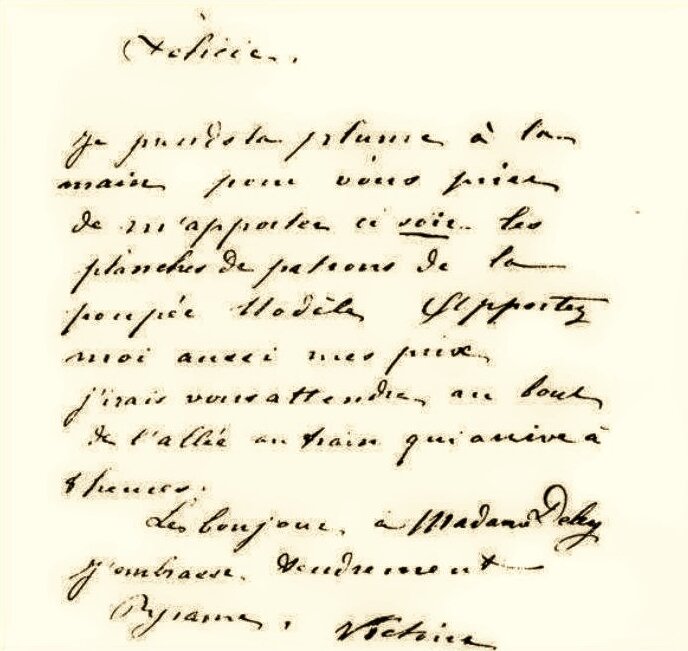 Félicie.
Je prends la plume à la
main pour vous prier
de m'apporter ce soir les
planches de patrons de la
poupée Modèle Apportez
moi aussi mes prix
j'irais vous attendre au bout
de l'allée au train qui arrive à
8 heures.
Le bonjour à Madame
J'embrasse tendrement
Pyrame.